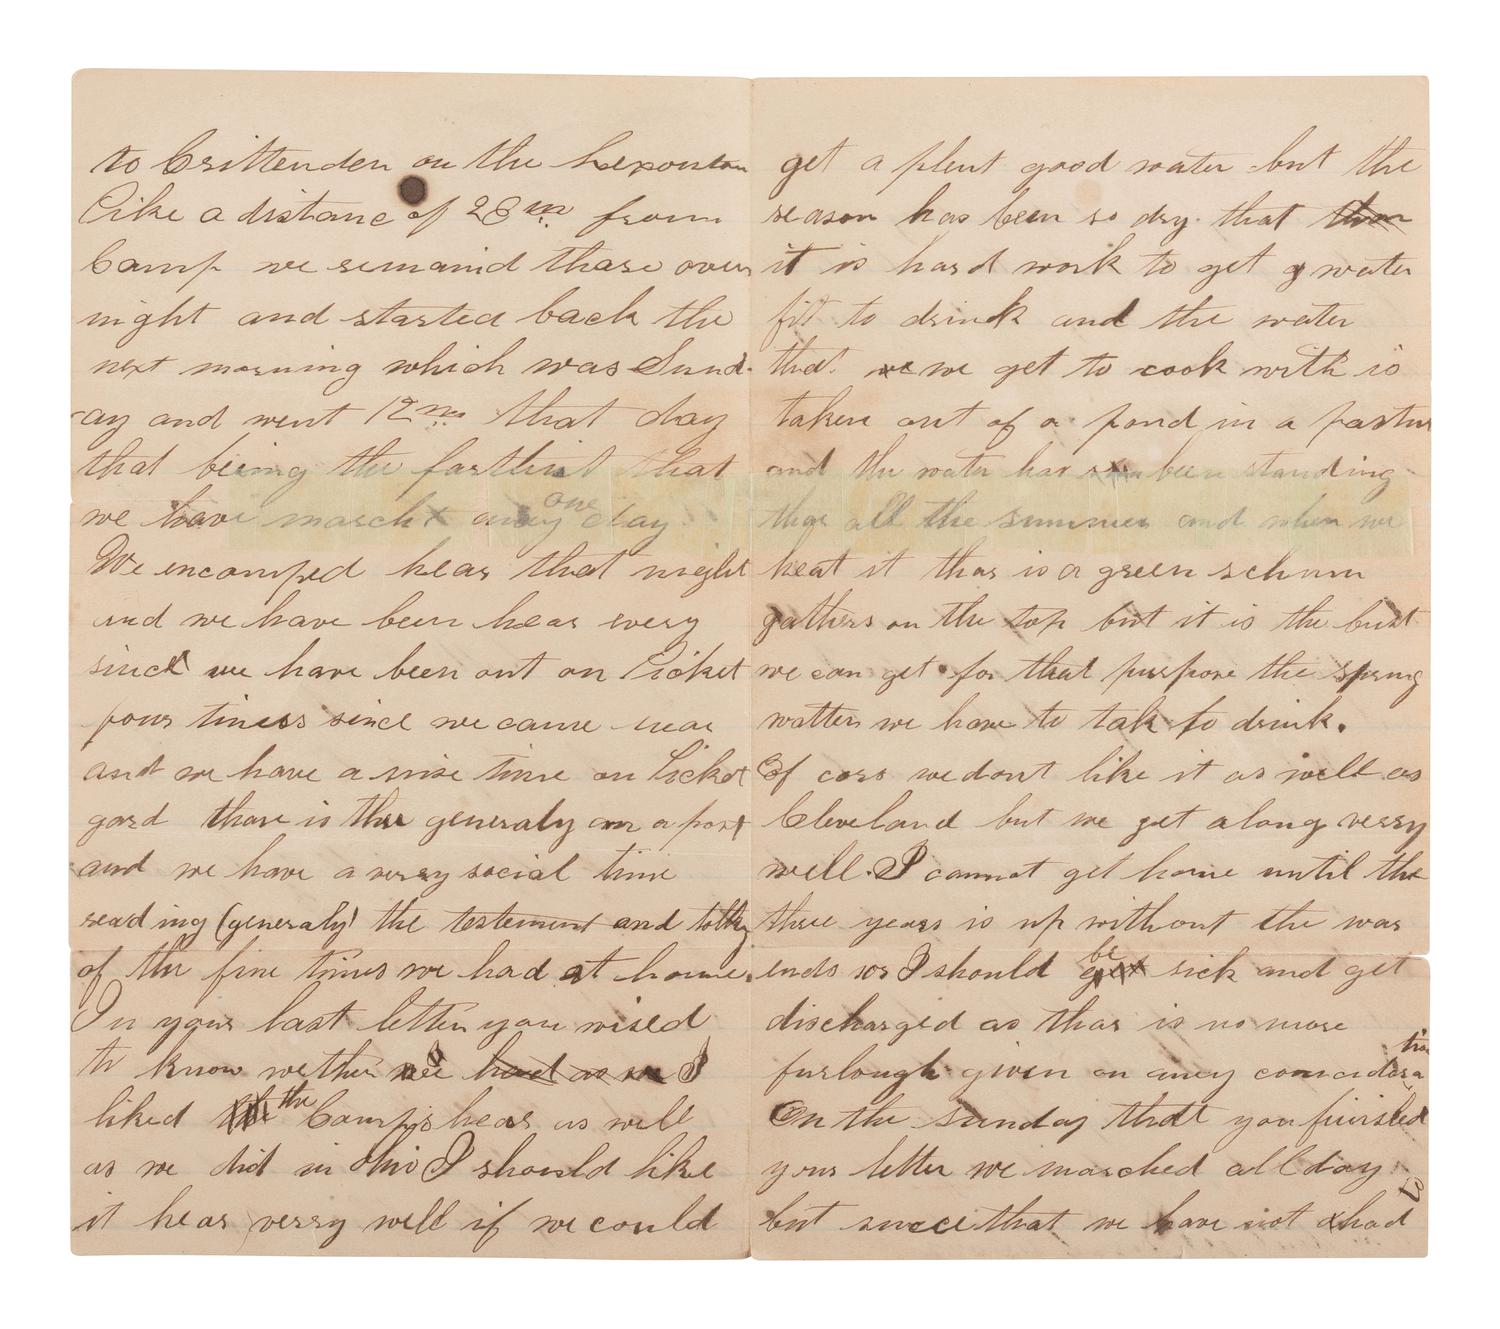 to Crittenden on the Lexouton
Pike a distanc of 28 m. from
Camp we remaind thare over
night and started back the
next morning which was Sund-
ay and went 12 m. that day
that being the farthist that
we have march aney one day.
We encamped hear that night
and we have been hear every
since we have been out on Picket
four times since we came hear
and we have a nise time on Picket
gard thare is thre generaly on a post
and we have a verry social time
reading (generaly) the testement and talking
of the fine times we had at home.
In your last letter you wised
to know wether I had as we I
liked the Camps hear as well
as we did in Ohio I should like
it hear verry well if we could
get a plent good water but the
season has been so dry that than
it is hard work to get water
fit to drink and the water
that we we get to cook with is
taken out of a pond in a pastur
and the water has been standing
thar all the summer and when we
heat it thar is a green schum
gathers on the top but it is the best
we can get for that purpose the spring
watter we have to tak to drink.
Of cors we dont like it as well as
Cleveland but we get along verry
well. I cannot get home until the
three years is up without the war
ends or I should be get sick and get
discharged as thar is no more
furlough given on aney concidera tion
On the sunday that you finished
your letter we marched all day
but since that we have not had